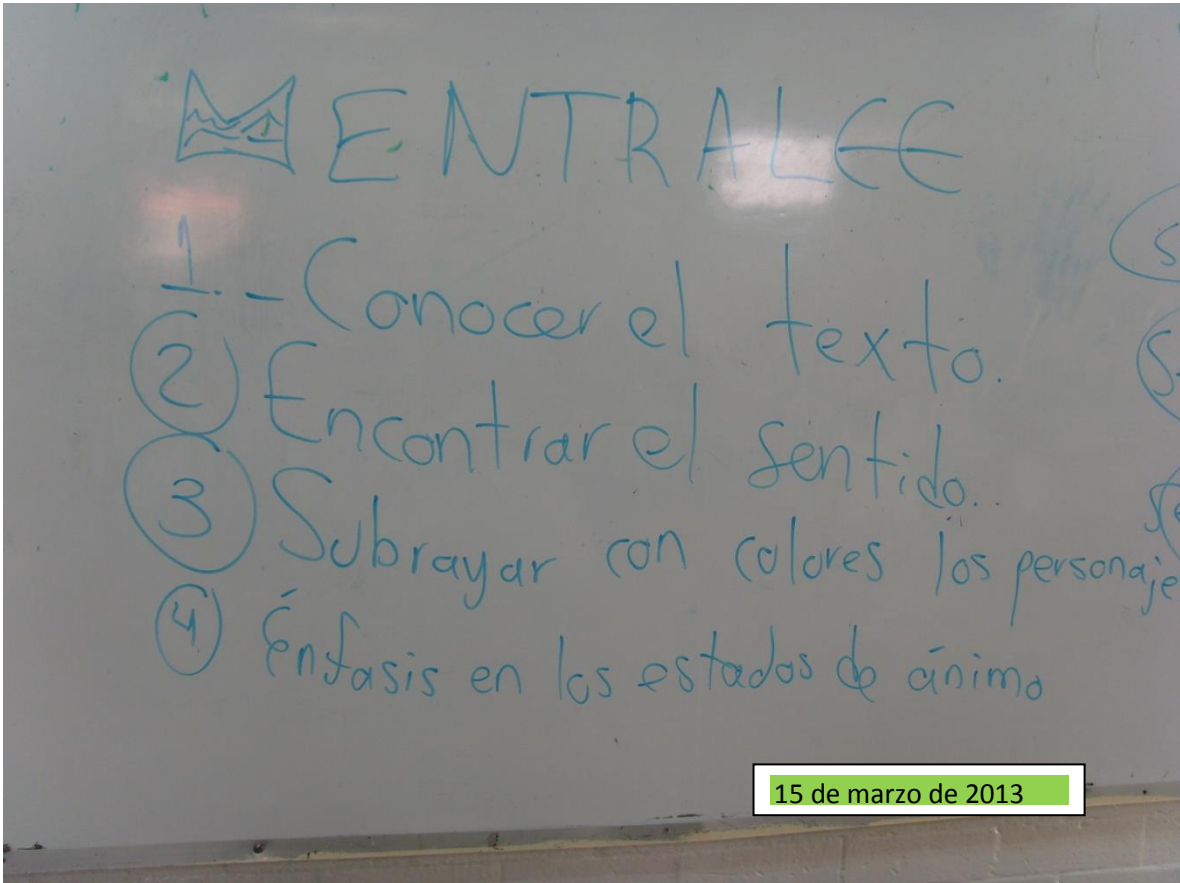 MENTRALEE
1.- Conocer el texto.
2 Encontrar el sentido.
3 Subrayar con colores los personaje
4 Énfasis en los estados de ánimo
15 de marzo de 2013